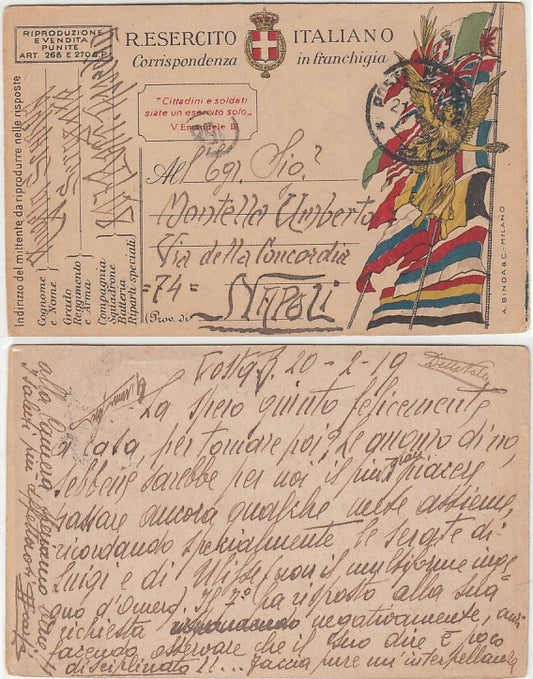 RIPRODUZIONE
E VENDITA
PUNITE
ART. 268 E 270 C.P.
R. ESERCITO ITALIANO
Corrispondenza in franchigia
"Cittadini e soldati
siate un esercito solo„
V. Emanuele III
Indirizzo del mittente da riprodurre nelle risposte
Cognome
e Nome
Grado
Reggimento
e Arma
Compagnia
Squadrone
Batteria
Riparti speciali
Al Sig. Sig.
Montella Umberto
Via della Concordia
=74=
(Prov. di
NAPOLI
A. BINDA & C. - MILANO
20-2-19
La spero giunto felicemente
a casa, per tornare poi? Le auguro di no,
sebbene sarebbe per noi il più gran piacere
passare ancora qualche mese assieme,
ricordando specialmente le serate di
Luigi e di Ulisse (non il multiforme inge
gno d'Omero). Il 7° ha risposto alla sua
richiesta rispondendo negativamente, anzi
facendo osservare che il suo dire è poco
disciplinato!!... Faccia pure mi interpellanza